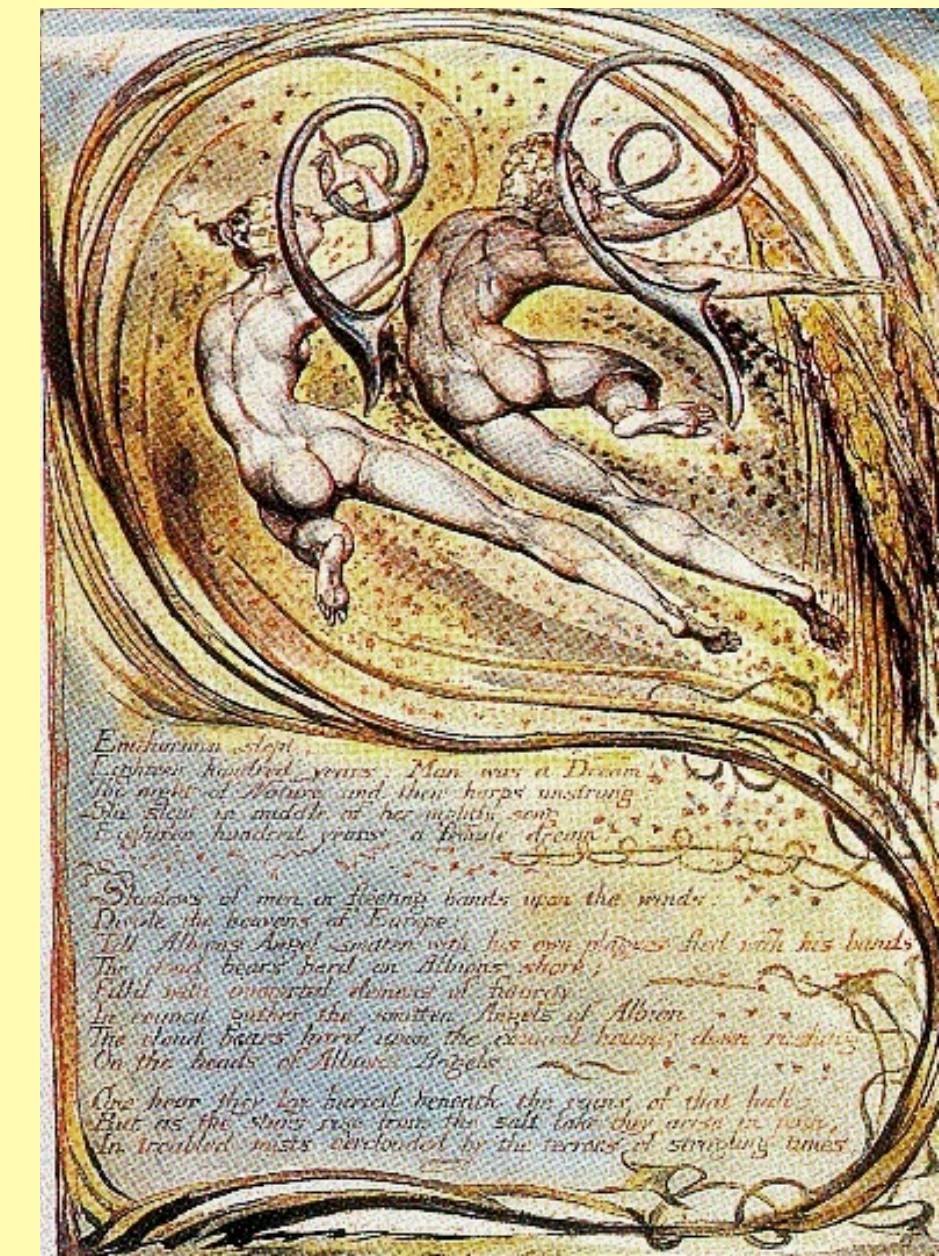 Enitharmon slept,
Eighteen hundred years: Man was a Dream!
The night of Nature and their harps unstrung
She slept in middle of her nightly song,
Eighteen hundred years, a female dream
Shadows of men in fleeting bands upon the winds:
Divide the heavens of Europe:
Till Albions Angel smitten with his own plagues fled with his bands
The cloud bears hard on Albions shore:
Fill'd with immortal demons of futurity:
In council gather the smitten Angels of Albion
The cloud bears hard upon the council house; down rushing
On the heads of Albions Angels.
One hour they lay buried beneath the ruins of that hall;
But as the stars rise from the salt lake they arise in pain,
In troubled mists o'erclouded by the terrors of strugling times